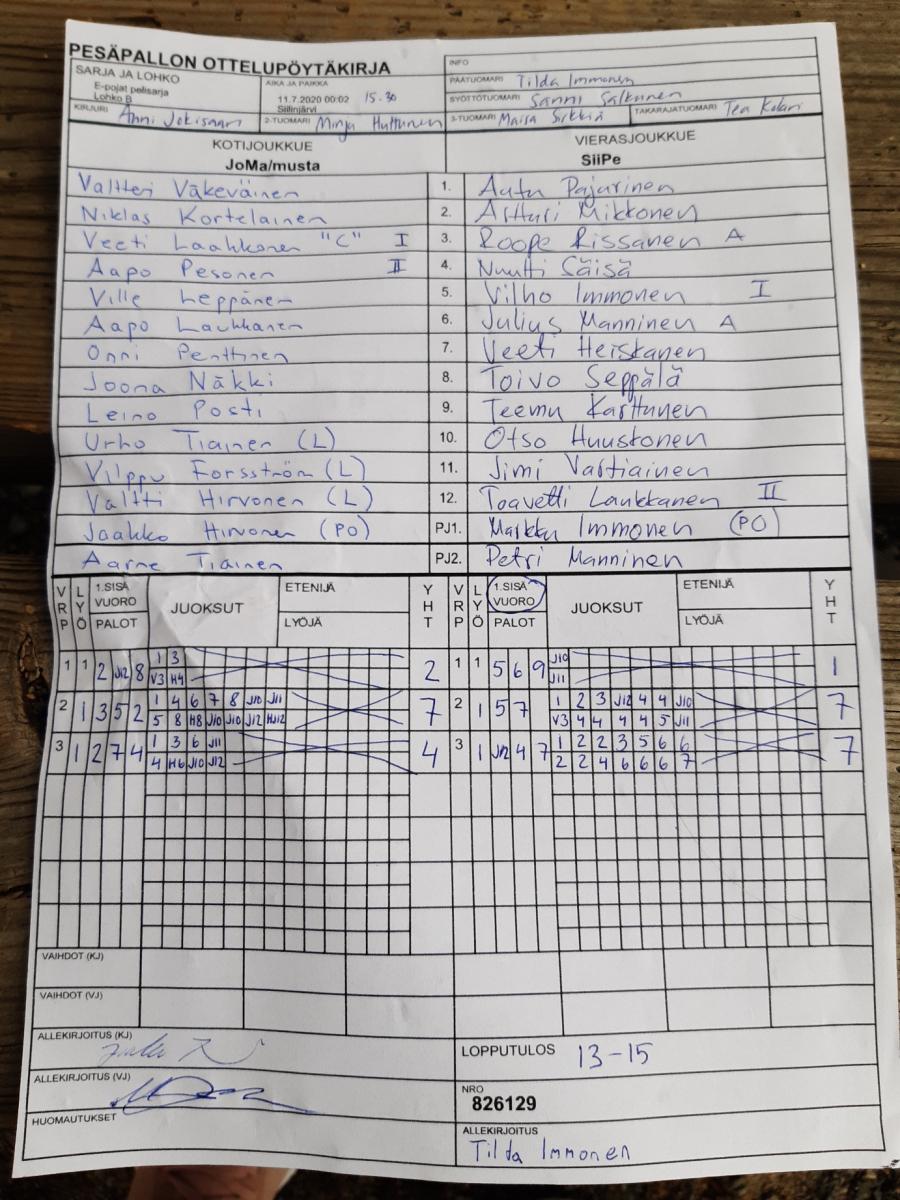 PESÄPALLON OTTELUPÖYTÄKIRJA
SARJA JA LOHKO
E-pojat pelisarja
Lohko B
AIKA JA PAIKKA
11.7.2020 00:02 15.30
Siilinjärvi
INFO
PÄÄTUOMARI Tilda Immonen
SYÖTTÖTUOMARI Sanni Salkunen
KIRJURI Anni Jokisaari
2-TUOMARI Minja Huttunen
3-TUOMARI Maisa Sirkkiä
TAKARAJATUOMARI Tea Kokari
KOTIJOUKKUE
JoMa/musta
VIERASJOUKKUE
SiiPe
Valtteri Väkeväinen 1. Autu Pajarinen
Niklas Kortelainen 2. Artturi Mikkonen
Veeti Laakkonen "C" I 3. Roope Rissanen A
Aapo Pesonen II 4. Nuutti Säisä
Ville Leppänen 5. Vilho Immonen I
Aapo Laukkanen 6. Julius Manninen A
Onni Penttinen 7. Veeti Heiskanen
Joona Näkki 8. Toivo Seppälä
Leino Posti 9. Teemu Karttunen
Urho Tiainen (L) 10. Otso Huuskonen
Vilppu Forsström (L) 11. Jimi Vartiainen
Valtti Hirvonen (L) 12. Taavetti Laukkanen II
Jaakko Hirvonen (PO) PJ1. Markku Immonen (PO)
Aarne Tiainen PJ2. Petri Manninen
VRP LYÖ 1.SISÄ VUORO PALOT JUOKSUT ETENIJÄ LYÖJÄ YHT VRP LYÖ 1.SISÄ VUORO PALOT JUOKSUT ETENIJÄ LYÖJÄ YHT
1 1 2 J12 8 1 3 2 1 1 5 6 9 J10 1
V3 H4 J11
2 1 3 5 2 1 4 6 7 8 J10 J11 7 2 1 5 7 1 2 3 J12 4 4 J10 7
5 8 H8 J10 J10 J12 HJ12 V3 4 4 4 4 5 J11
3 1 2 7 4 1 3 6 J11 4 3 1 J12 4 7 1 2 2 3 5 6 6 7
4 H6 J10 J12 2 2 4 6 6 6 7
VAIHDOT (KJ)
VAIHDOT (VJ)
ALLEKIRJOITUS (KJ)
LOPPUTULOS 13-15
ALLEKIRJOITUS (VJ)
NRO
826129
HUOMAUTUKSET
ALLEKIRJOITUS
Tilda Immonen